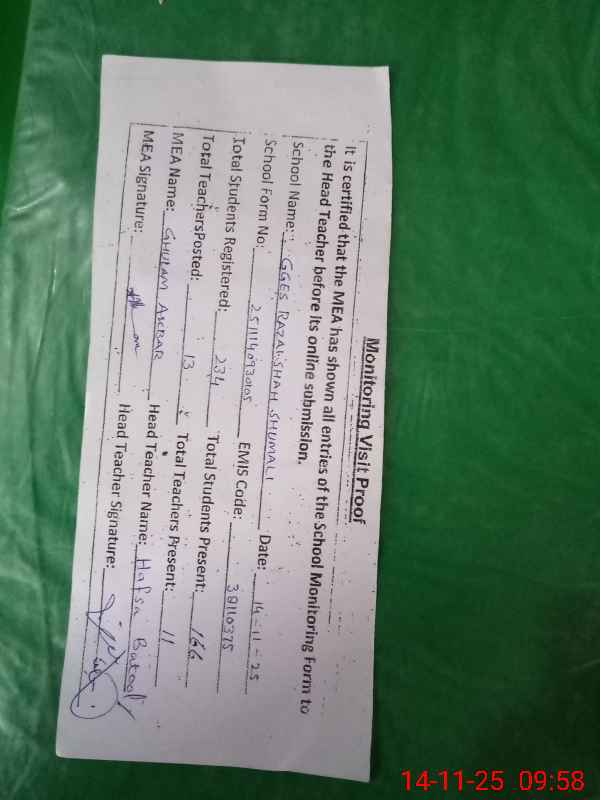 Monitoring Visit Proof
It is certified that the MEA has shown all entries of the School Monitoring Form to
the Head Teacher before its online submission.
School Name: GGES RAZALISHAH SHUMALI
School Form No: Date: 14-11-25
EMIS Code: 38110375
Total Students Registered: 234 Total Students Present: 166
Total TeachersPosted: 13 Total Teachers Present: 11
MEA Name: GHULAM AKBAR Head Teacher Name: Hafsa Batool
MEA Signature: Head Teacher Signature:
14-11-25 09:58